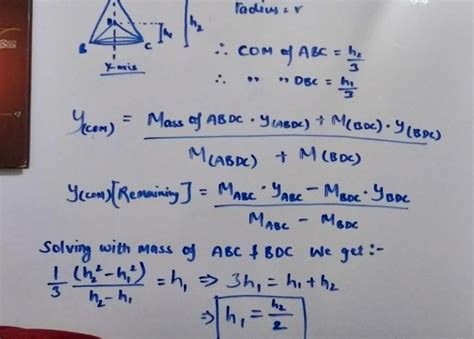 radius = r
D
h₁
h₂
B
C
Y-axis
∴ COM of ABC = h₂/3
∴ " " DBC = h₁/3
Y(COM) = Mass of ABDC · Y(ABDC) + M(BDC) · Y(BDC) / M(ABDC) + M(BDC)
Y(COM) [Remaining] = M_ABC · Y_ABC − M_BDC · Y_BDC / M_ABC − M_BDC
Solving with mass of ABC & BDC we get:-
1/3 (h₂² − h₁²)/(h₂ − h₁) = h₁ ⇒ 3h₁ = h₁ + h₂
⇒ h₁ = h₂/2